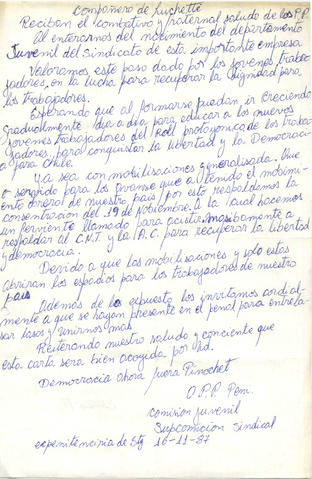 Compañero de luchette
Reciban el combativo y fraternal saludo de los P.P.
Al enterarnos del nacimiento del departamento
Juvenil del Sindicato de esta importante empresa
Valoramos este paso dado por los jovenes traba-
jadores, en la lucha para recuperar la dignidad para
los trabajadores.
Esperando que al formarse puedan ir creciendo
gradualmente dia a dia para educar a los nuevos
jovenes trabajadores del roll protagonico de los traba-
jadores, para conquistar la libertad y la Democracia
para Chile.
Ya sea con mobilisaciones y generalisada. Que
a servido para los avanse que a tenido el movimi-
ento obrero de nuestro pais por esto respaldamos la
consentración del 19 de Nobiembre. A la cual hacemos
un ferviente llamado para acistir masibamente a
respaldar al C.N.T y la A.C. para recuperar la libertad
y democracia.
Devido a que las mobilisaciones y solo estas
abriran los espadios para los trabajadores de nuestro
pais
Ademas de lo expuesto los invitamos cordial-
mente a que se hagan presente en el penal para entrela-
sar lasos y unirnos mas
Reiterando nuestro saludo y conciente que
esta carta sera bien acogida por Ud.
Democracia Ahora fuera Pinochet
O.P.P. Pem.
comision juvenil
Supcomicion Sindical
expenitenciria de Stg 16-11-87